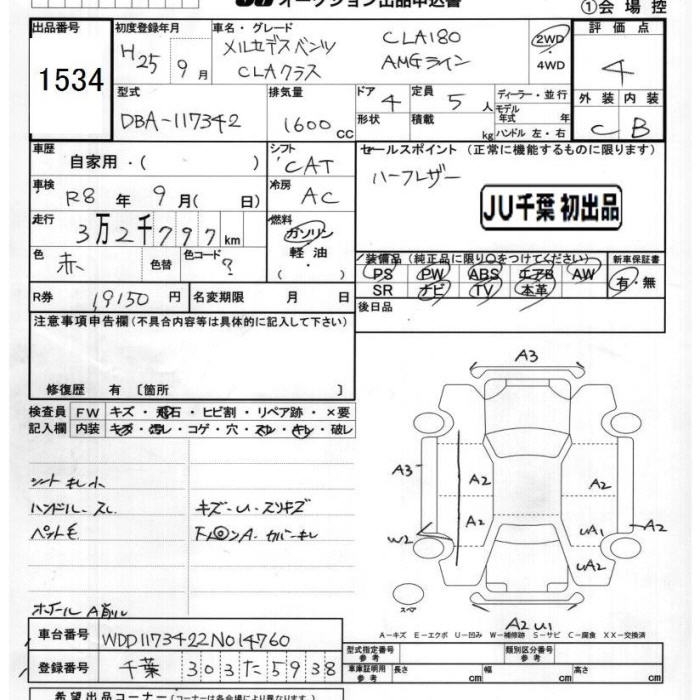 オークション出品申込書
①会場控
出品番号 1534
初度登録年月 H25年9月
車名・グレード
メルセデスベンツ CLA180
CLAクラス AMGライン
2WD
4WD
評価点 4
外装 内装
C B
型式 DBA-117342
排気量 1600cc
ドア 4
形状
定員 5人
積載 kg
ディーラー・並行
モデル年式 年
ハンドル 左・右
車歴 自家用・( )
シフト CAT
セールスポイント (正常に機能するものに限ります)
ハーフレザー
JU千葉 初出品
車検 R8年9月( 日)
冷房 AC
走行 3万2千797km
燃料 ガソリン
軽油
・( )
色 赤 色替 色コード ?
装備品(純正品に限り○をつけてください) 新車保証書
PS PW ABS エアB AW 有・無
SR ナビ TV 本革
R券 19150円 名変期限 月 日
後日品
注意事項申告欄(不具合内容等は具体的に記入して下さい)
修復歴 有 〔箇所 〕
検査員記入欄
FW キズ・飛石・ヒビ割・リペア跡・×要
内装 キズ・汚レ・コゲ・穴・スレ・キレ・破レ
シートキレ小
ハンドル-スレ
キズ-U-スリキズ
ペット毛
ホイールA有ル
A3
A3
A2
A2
A2
W2
UA1
A2
UA2
スペア
A2 U1
A-キズ E-エクボ U-凹み W-補修跡 S-サビ C-腐食 XX-交換済
車台番号 WDD1173422N014760
登録番号 千葉 303 た 5938
型式指定番号 参考
類別区分番号 参考
車庫証明用 参考 長さ cm 幅 cm 高さ cm
希望出品コーナー(コーナーは各会場により異なります)